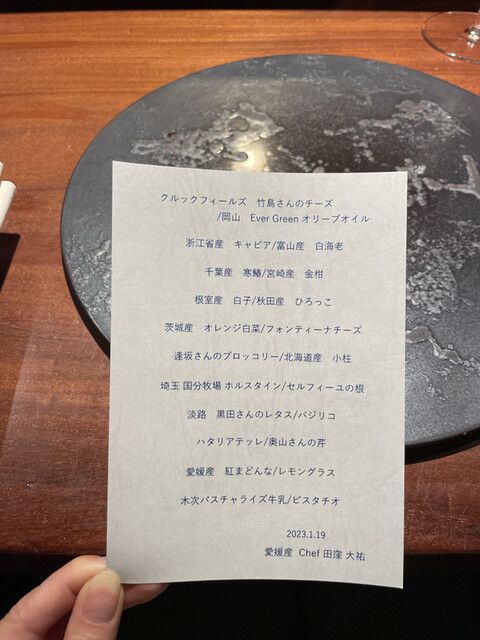 クルックフィールズ　竹島さんのチーズ
/岡山　Ever Green オリーブオイル
浙江省産　キャビア/富山産　白海老
千葉産　寒鰆/宮崎産　金柑
根室産　白子/秋田産　ひろっこ
茨城産　オレンジ白菜/フォンティーナチーズ
逢坂さんのブロッコリー/北海道産　小柱
埼玉 国分牧場 ホルスタイン/セルフィーユの根
淡路　黒田さんのレタス/バジリコ
ハタリアテッレ/奥山さんの芹
愛媛産　紅まどんな/レモングラス
木次パスチャライズ牛乳/ピスタチオ
2023.1.19
愛媛産  Chef 田窪 大祐